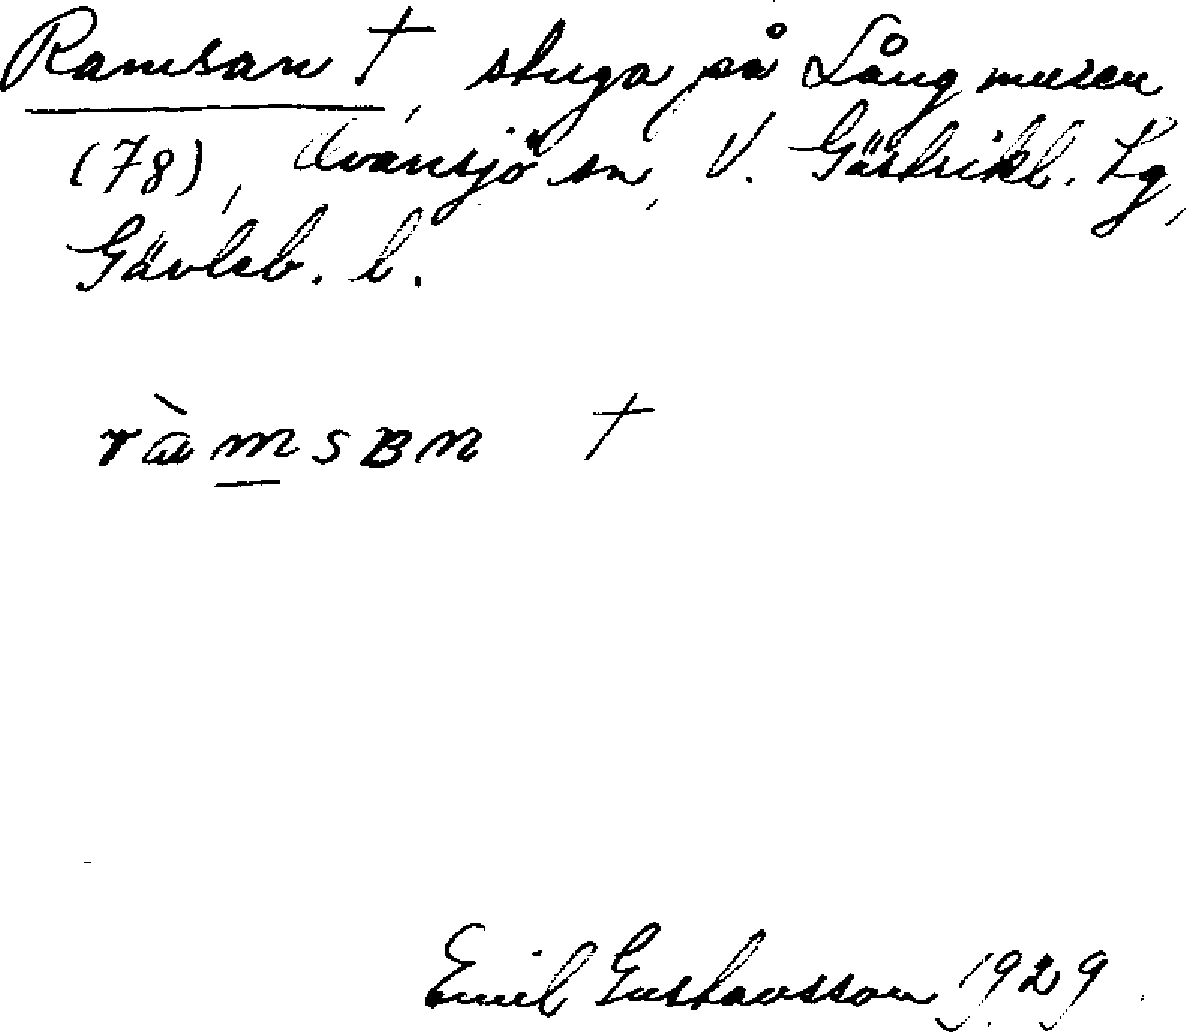 Ramsan †, stuga på Långmuren
(78), Ovansjö sn, V. Gästrikl. tg,
Gävleb. l.
ràmsʙn †
Emil Gustavsson 1929.